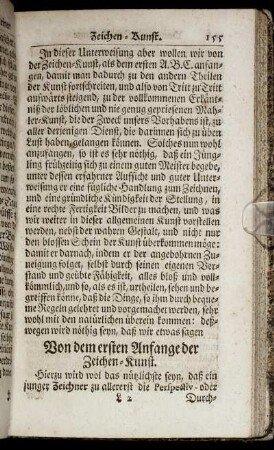 Zeichen-Kunst. 155
In dieser Unterweisung aber wollen wir von
der Zeichen-Kunst, als dem ersten A.B.C. anfan-
gen, damit man dadurch zu den andern Theilen
der Kunst fortschreiten, und also von Tritt zu Tritt
auswärts steigend, zu der vollkommenen Erkänt-
niß der löblichen und nie genug gepriesenen Mah-
ler-Kunst, die der Zweck unsers Vorhabens ist, zu
aller derjenigen Dienst, die darinnen sich zu üben
Lust haben, gelangen können. Solches nun wohl
anzufangen, so ist es sehr nöthig, daß ein Jüng-
ling frühzeitig sich zu einem guten Meister begebe,
unter dessen erfahrner Aufsicht und guter Unter-
weisung er eine fügliche Handlung zum Zeichnen,
und eine gründliche Kündigkeit der Stellung, in
eine rechte Fertigkeit Bilder zu machen, und was
wir weiter in dieser allgemeinen Kunst vorstellen
werden, nebst der wahren Gestalt, und nicht nur
den blossen Schein der Kunst überkommen möge:
damit er darnach, indem er der angebohrnen Zu-
neigung folget, selbst durch seinen eigenen Ver-
stand und geübte Fähigkeit, alles bloß und voll-
kömmlich, und so, als es ist, urtheilen, sehen und be-
greiffen könne, daß die Dinge, so ihm durch beque-
me Regeln gelehret und vorgemachet werden, sehr
wohl mit den natürlichen überein kommen: deß-
wegen wird nöthig seyn, daß wir etwas sagen
Von dem ersten Anfange der
Zeichen-Kunst.
Hierzu wird wol das nützlichste seyn, daß ein
junger Zeichner zu allererst die Perspectiv- oder
L 2 Durch-